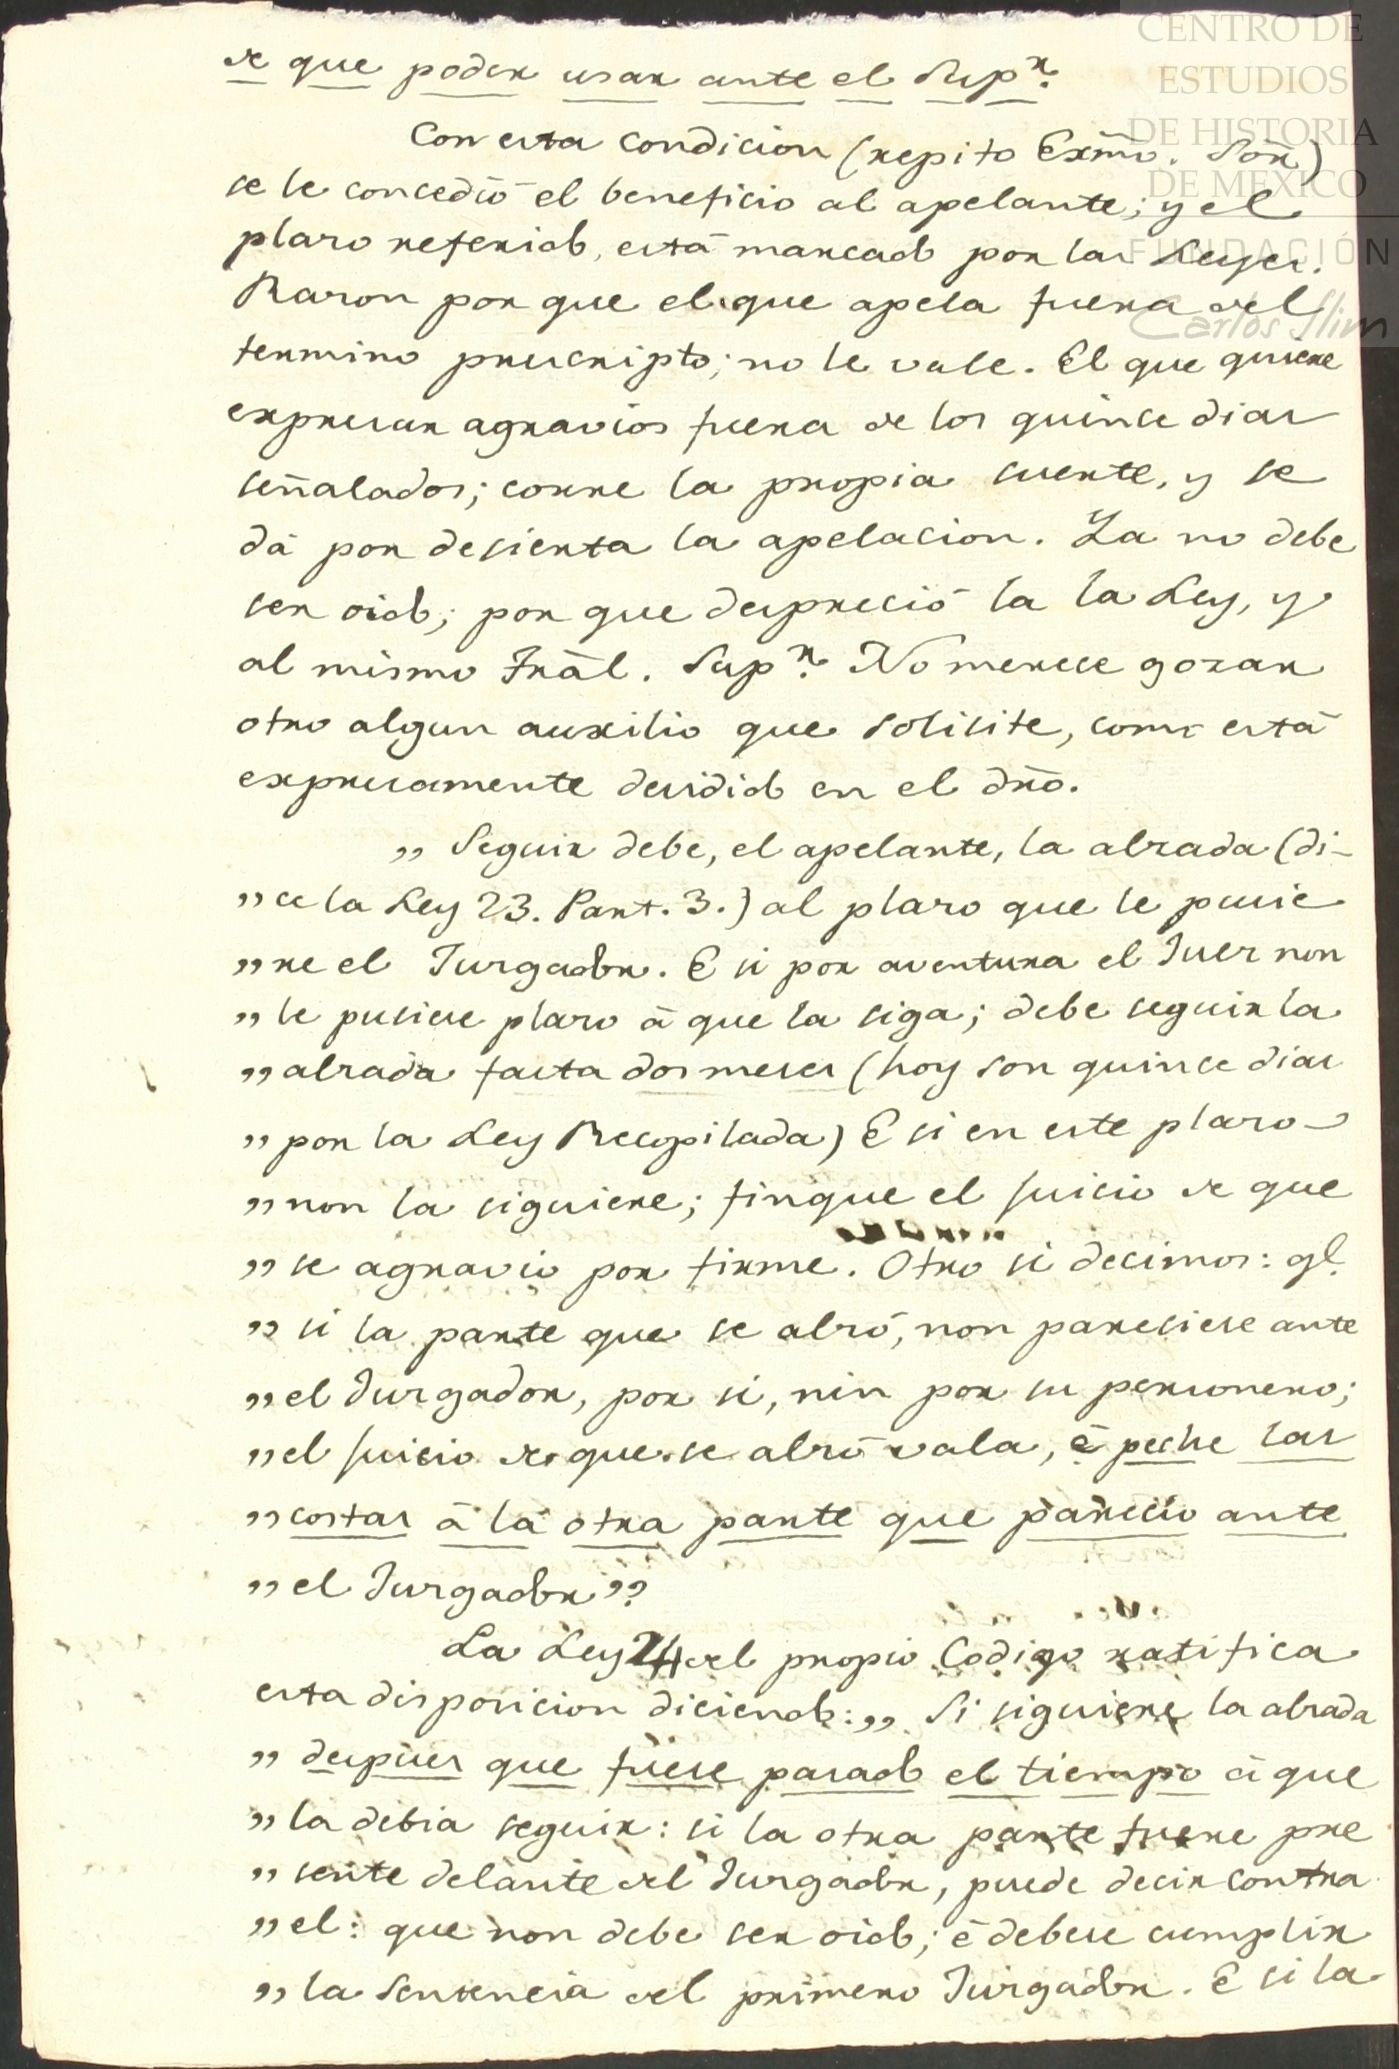 CENTRO DE
ESTUDIOS
DE HISTORIA
DE MEXICO
FUNDACIÓN
Carlos Slim
de que poder usar ante el Supr.
Con esta condicion (repito Exmo. Sor)
se le concedió el beneficio al apelante; y el
plazo referido, está marcado por las Leyes.
Razon por que el que apela fuera del
termino prescripto; no le vale. El que quiere
expresar agravios fuera de los quince dias
señalados; corre la propia suerte, y se
dá por decierta la apelacion. Ya no debe
ser oido; por que despreció la la Ley, y
al mismo Trãl. Supr. No merece gozar
otro algun auxilio que solicite, como está
expresamente decidido en el dro.
„ Seguir debe, el apelante, la alzada (di-
„ ce la Ley 23. Part. 3.) al plazo que le pusie
„ re el Juzgador. E si por aventura el Juez non
„ le pusiese plazo á que la siga; debe seguir la
„ alzada fasta dos meses (hoy son quince dias
„ por la Ley Recopilada) E si en este plazo
„ non la siguiere; finque el juicio de que
„ se agravió por firme. Otro si decimos: q̃.
„ si la parte que se alzó, non pareciese ante
„ el Juzgador, por si, nin por su personero;
„ el juicio de que se alzó vala, é peche las
„ costas á la otra parte que pareció ante
„ el Juzgador”
La Ley 24 del propio Codigo ratifica
esta disposicion diciendo: „ Si siguiere la alzada
„ despues que fuese pasado el tiempo á que
„ la debia seguir: si la otra parte fuere pre
„ sente delante del Juzgador, puede decir contra
„ el: que non debe ser oido; é debese cumplir
„ la sentencia del primero Juzgador. E si la